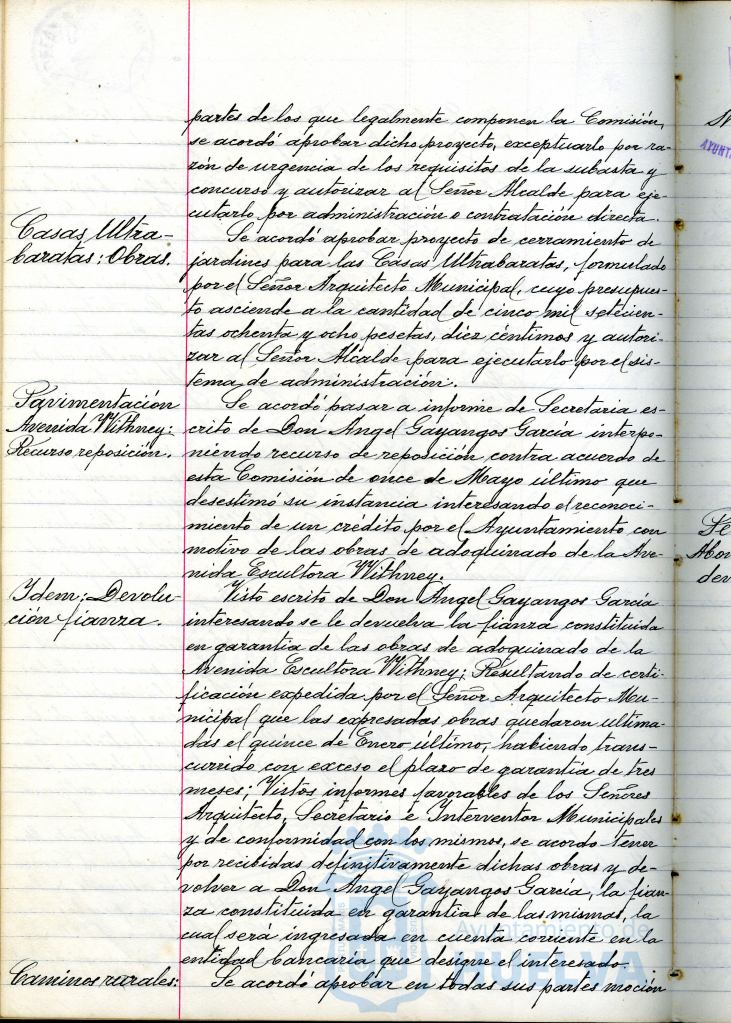 partes de los que legalmente componen la Comisión,
se acordó aprobar dicho proyecto, exceptuarlo por ra-
zón de urgencia de los requisitos de la subasta y
concurso y autorizar al Señor Alcalde para eje-
cutarlo por administración o contratación directa.
Casas Ultra-
baratas: Obras.
Se acordó aprobar proyecto de cerramiento de
jardines para las Casas Ultrabaratas, formulado
por el Señor Arquitecto Municipal, cuyo presupues-
to asciende a la cantidad de cinco mil setecien-
tas ochenta y ocho pesetas, diez céntimos y autori-
zar al Señor Alcalde para ejecutarlo por el sis-
tema de administración.
Pavimentación
Avenida Withney:
Recurso reposición.
Se acordó pasar a informe de Secretaria es-
crito de Don Angel Gayangos García interpo-
niendo recurso de reposición contra acuerdo de
esta Comisión de once de Mayo último que
desestimó su instancia interesando el reconoci-
miento de un crédito por el Ayuntamiento con
motivo de las obras de adoquinado de la Ave-
nida Escultora Withney.
Idem: Devolu-
ción fianza.
Visto escrito de Don Angel Gayangos García
interesando se le devuelva la fianza constituida
en garantia de las obras de adoquinado de la
Avenida Escultora Withney; Resultando de certi-
ficación expedida por el Señor Arquitecto Mu-
nicipal que las expresadas obras quedaron ultima-
das el quince de Enero último, habiendo trans-
currido con exceso el plazo de garantia de tres
meses; Vistos informes favorables de los Señores
Arquitecto, Secretario e Interventor Municipales
y de conformidad con los mismos, se acordo tener
por recibidas definitivamente dichas obras y de-
volver a Don Angel Gayangos García, la fian-
za constituida en garantia de las mismas, la
cual será ingresada en cuenta corriente en la
entidad bancaria que designe el interesado.
Caminos rurales:
Se acordó aprobar en todas sus partes moción
Ayuntamiento de
HUELVA